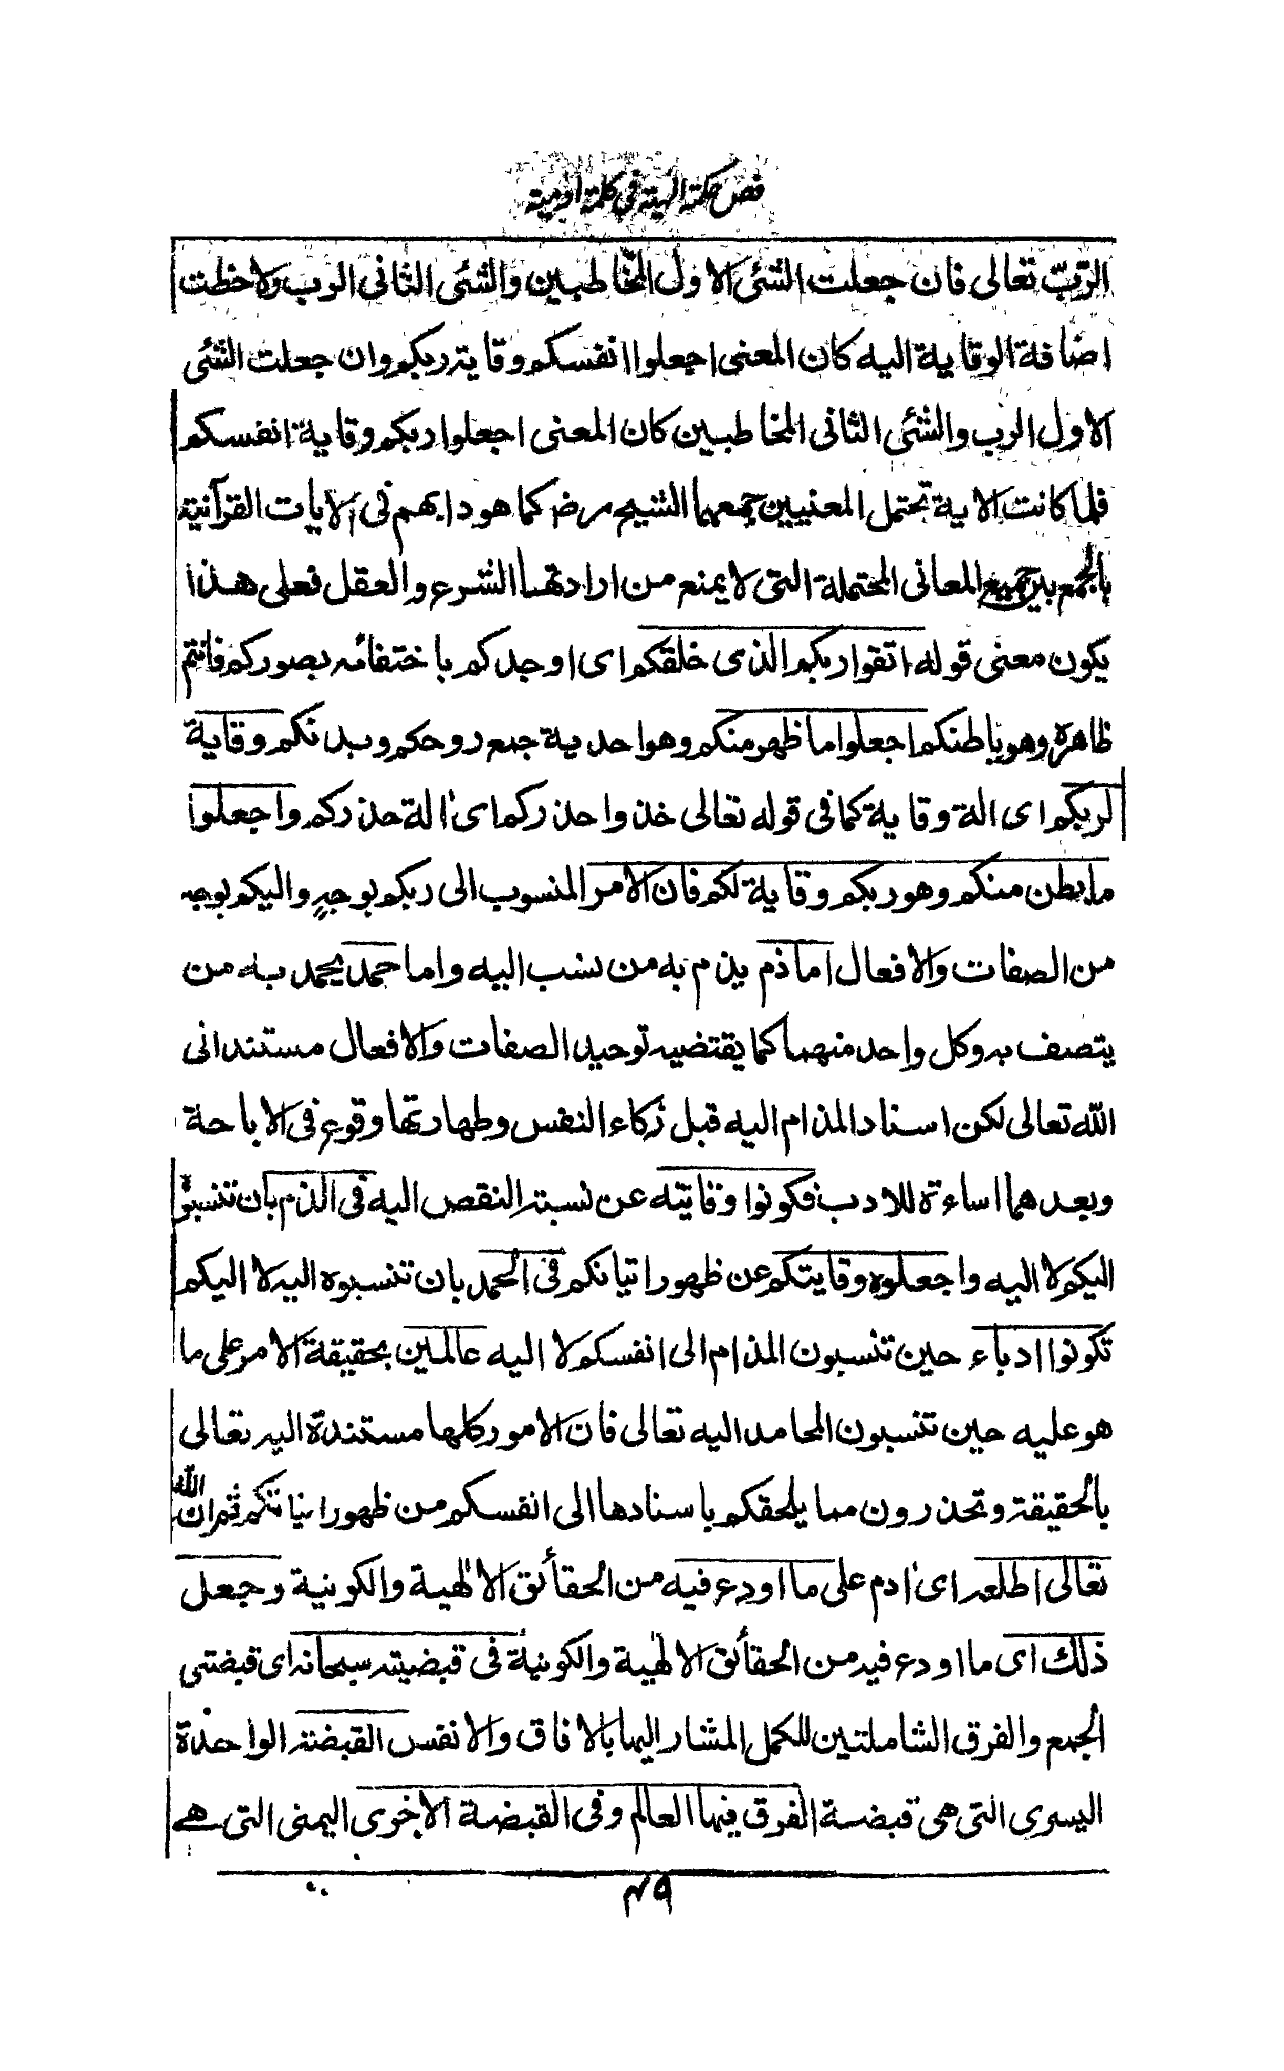 فص حكمة الهية في كلمة ادمية
الربّ تعالى فان جعلت الشئى الاول المخاطبين والشئى الثانى الرب ولاحظت
اضافة الوقاية اليه كان المعنى اجعلوا انفسكم وقاية ربكم وان جعلت الشئى
الاول الرب والشئى الثانى المخاطبين كان المعنى اجعلوا ربكم وقاية انفسكم
فلما كانت الاية تحتمل المعنيين جمعهما الشيخ رض كما هو دابهم فى الايات القرآنية
بالجمع بين جميع المعانى المحتملة التى لا يمنع من ارادتها الشرع والعقل فعلى هذا
يكون معنى قوله اتقوا ربكم الذى خلقكم اى اوجدكم باختفائه بصوركم فانتم
ظاهره وهو باطنكم اجعلوا ما ظهر منكم وهو احدية جمع روحكم وبدنكم وقاية
لربكم اى الة وقاية كما فى قوله تعالى خذوا حذركم اى الة حذركم واجعلوا
ما بطن منكم وهو ربكم وقاية لكم فان الامر المنسوب الى ربكم بوجهٍ واليكم بوجه
من الصفات والافعال اما ذم يذم به من نسب اليه واما حمد يحمد به من
يتصف به وكل واحد منهما كما يقتضيه توحيد الصفات والافعال مستند الى
الله تعالى لكن اسناد المذام اليه قبل زكاء النفس وطهارتها وقوع فى الاباحة
وبعدهما اساءة للادب فكونوا وقايته عن نسبة النقص اليه فى الذم بان تنسبوه
اليكم لا اليه واجعلوه وقايتكم عن ظهور انياتكم فى الحمد بان تنسبوه اليه لا اليكم
تكونوا ادباء حين تنسبون المذام الى انفسكم لا اليه عالمين بحقيقة الامر على ما
هو عليه حين تنسبون المحامد اليه تعالى فان الامور كلها مستندة اليه تعالى
بالحقيقة وتحذرون مما يلحقكم باسنادها الى انفسكم من ظهور انياتكم ثم ان الله
تعالى اطلعه اى ادم على ما اودع فيه من الحقائق الالهية والكونية وجعل
ذلك اى ما اودع فيه من الحقائق الالهية والكونية فى قبضتيه سبحانه اى قبضتى
الجمع والفرق الشاملتين للكمل المشار اليها بالافاق والانفس القبضة الواحدة
اليسرى التى هى قبضة الفرق فيها العالم وفى القبضة الاخرى اليمنى التى هے
۴۹